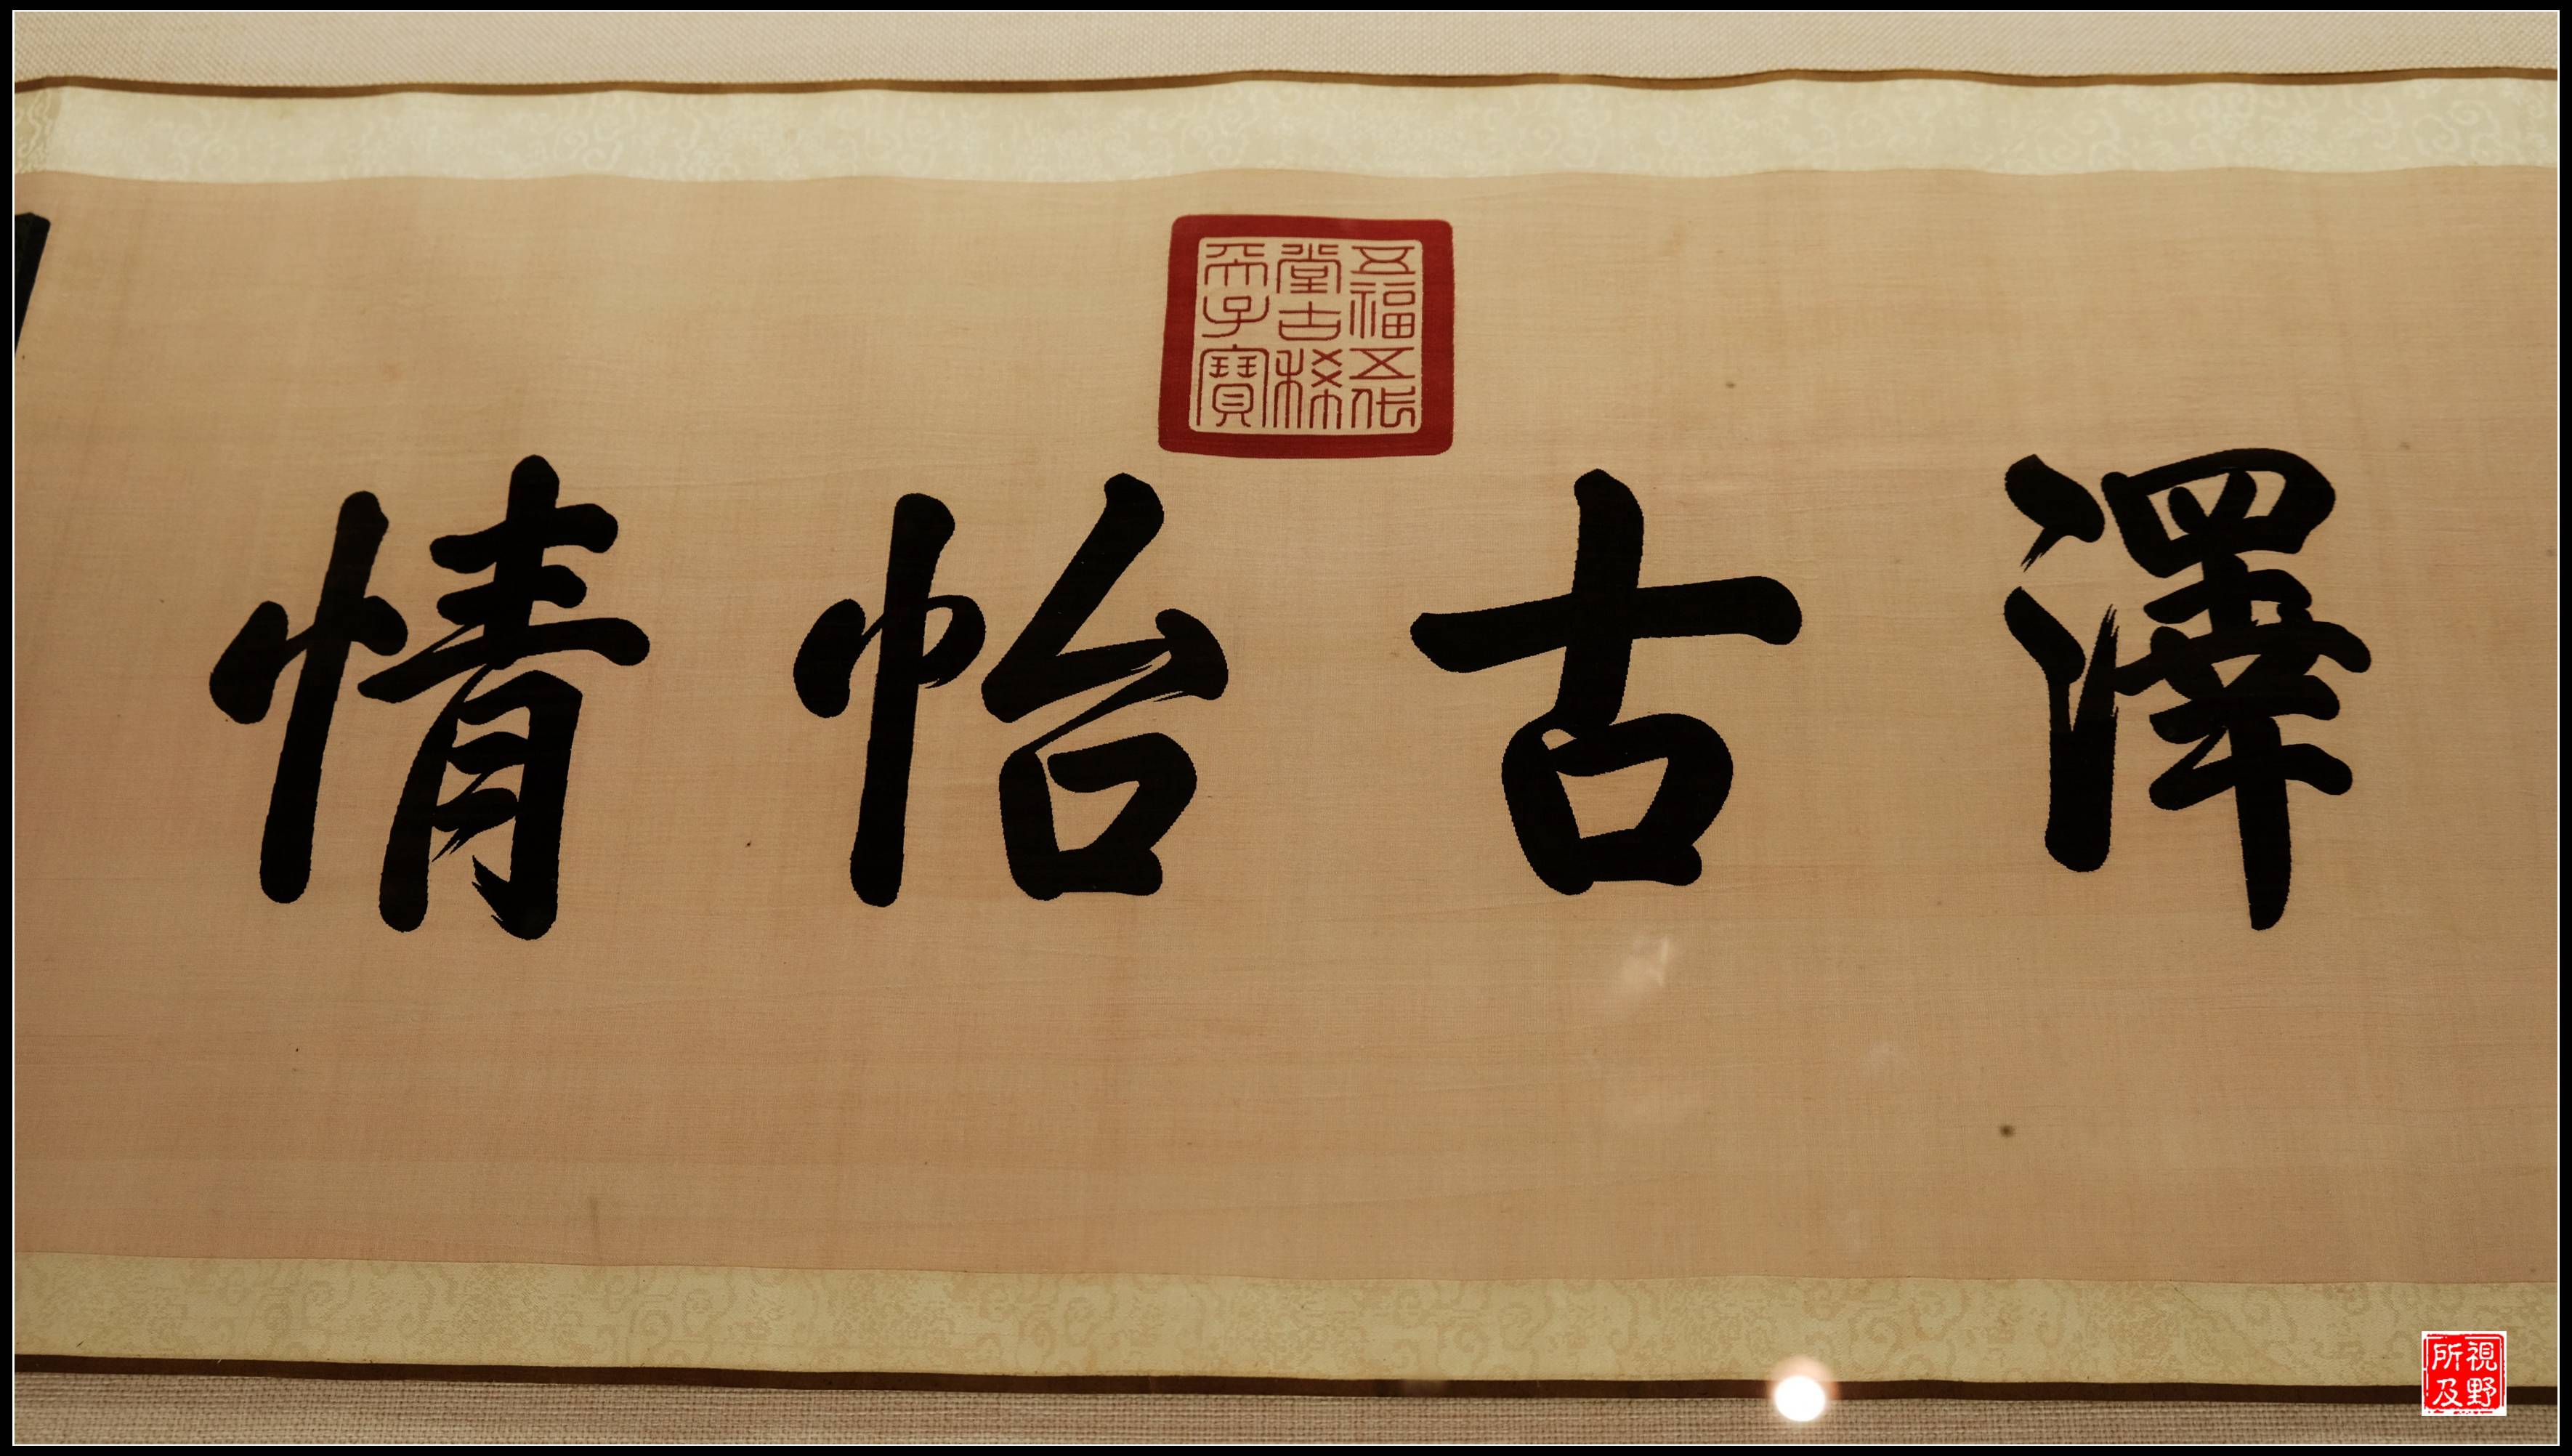 澤古怡情
五福五代
堂古稀
天子寶
視野
所及